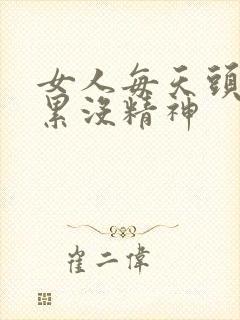 女人每天頭
累沒精神
崔二偉